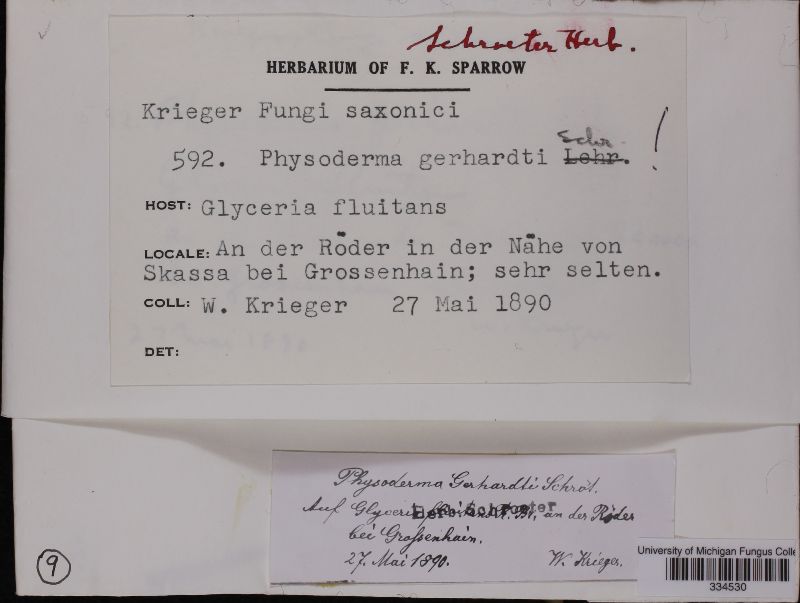 Schroeter Herb.
HERBARIUM OF F. K. SPARROW
Krieger Fungi saxonici
Schr
592. Physoderma gerhardti Lehr. !
HOST: Glyceria fluitans
LOCALE: An der Röder in der Nähe von
Skassa bei Grossenhain; sehr selten.
COLL: W. Krieger 27 Mai 1890
DET:
Physoderma Gerhardti Schröt.
Auf Glyceria fluitans R. Br., an der Röder
Herb. Schroeter
bei Großenhain.
27. Mai 1890. W. Krieger.
9
University of Michigan Fungus Colle
334530